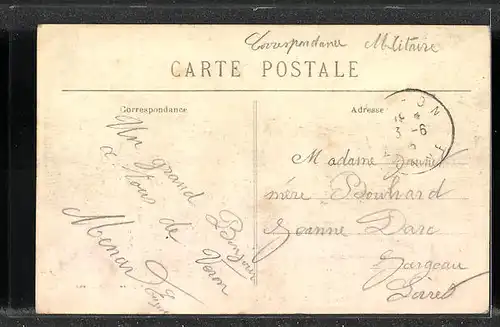 Correspondance Militaire
CARTE POSTALE
Correspondance
Adresse
Un grand Bonjour
à tous de Voron
Menar
Madame
mère Bouhard
Jeanne Darc
Jargeau
Loiret
3-6